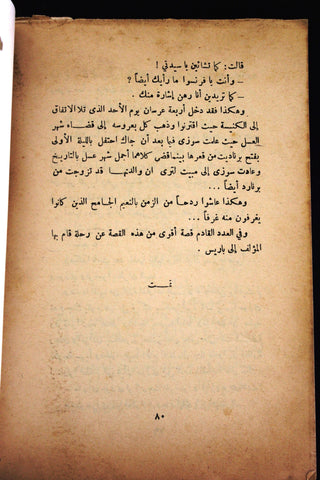 قالت: كما تشائين يا سيدتي !
— وأنت يا فرنسوا ما رأيك أيضاً ؟
— كما تريدين أنا رهن إشارة منك .
وهكذا فقد دخل أربعة عرسان يوم الأحد الذى تلا الاتفاق
إلى الكنيسة حيث اقترنوا وذهب كل بعروسه إلى قضاء شهر
العسل حيث علمت سوزى فيما بعد أن جاك احتفل بالليلة الأولى
بفتح برناديت من قعرها بينما قضى كلاهما أجمل شهر عسل بالتاريخ
وعادت سوزى إلى مبيت لترى أن والدتها قد تزوجت من
برنارد أيضاً ...
وهكذا عاشوا ردحاً من الزمن بالنعيم الجامح الذين كانوا
يغرفون منه غرفاً ...
وفي العدد القادم قصة أقوى من هذه القصة عن رحلة قام بها
المؤلف إلى باريس .
تمت
٨٠